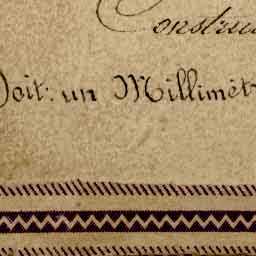 Constru
Soit: un Millimèt